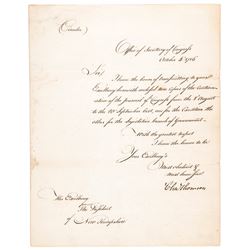 (Circular)
Office of Secretary of Congress
October 4th 1786
Sir,
I have the honor of transmitting to your
Excellency herewith enclosed two copies of the
of the journal of Congress from the August
to the 10th September last, one for the Executive the
other for the legislative branch of Government.
With the greatest respect
I have the honor to be
Your Excellency's
Most obedient &
most humble servt
Chas Thomson
His Excellency
The President
of New Hampshire